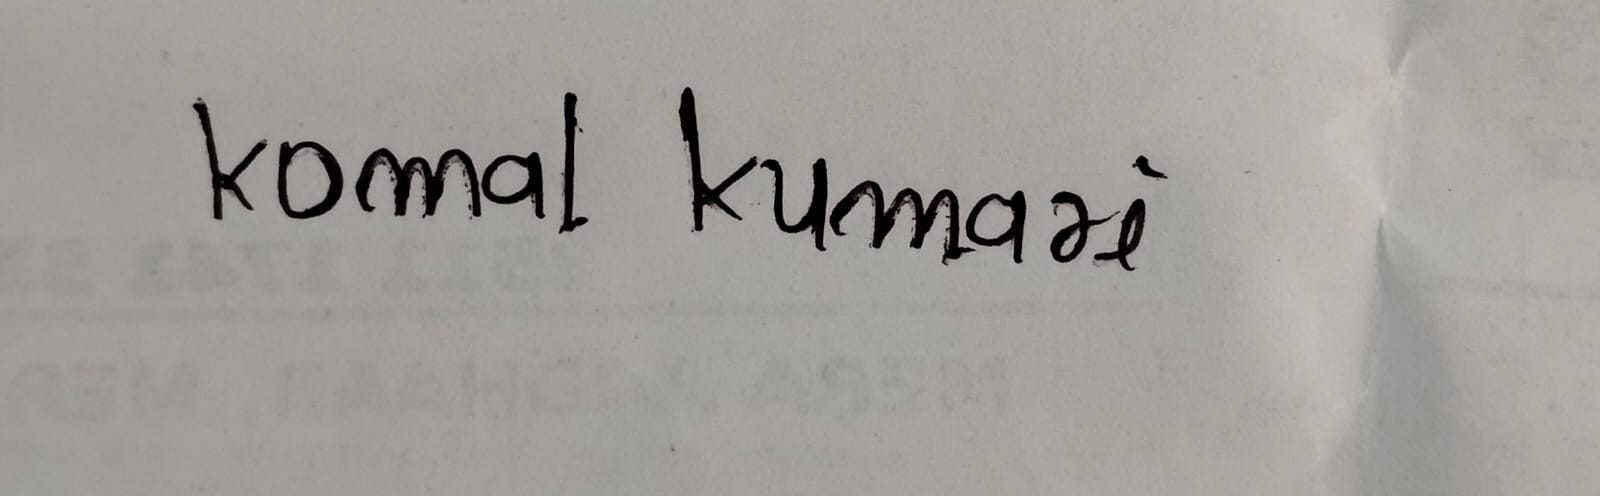 komal kumari